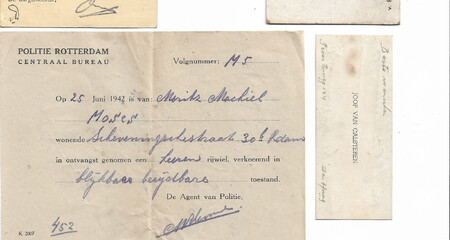 POLITIE ROTTERDAM
CENTRAAL BUREAU
Volgnummer: M 5
Op 25 Juni 1942 is van: Moritz Machiel
Moses
wonende Scheveningschestraat 30b R'dam
in ontvangst genomen een heeren rijwiel, verkeerend in
blijkbaar berijdbare toestand.
De Agent van Politie,
452
K 2007
JOOP VAN CALSTEREN